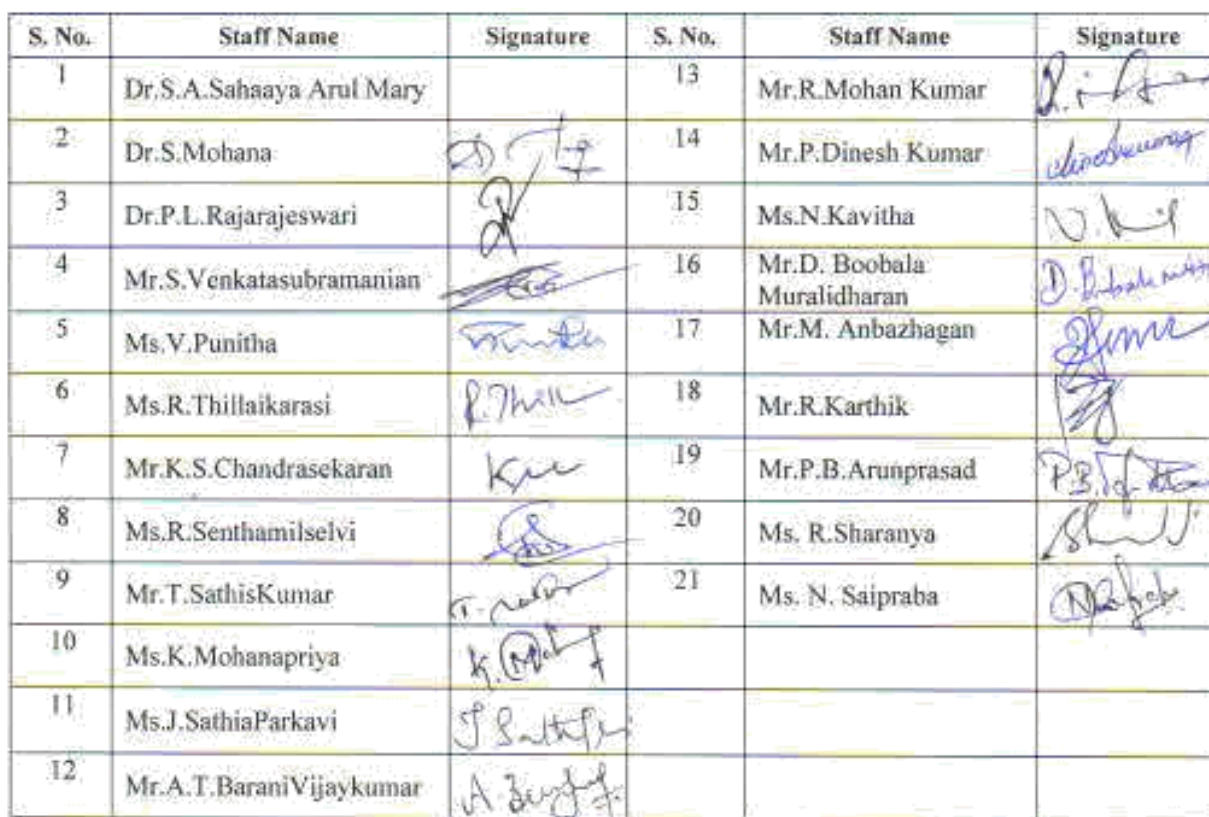 S. No. Staff Name Signature S. No. Staff Name Signature
1 Dr.S.A.Sahaaya Arul Mary 13 Mr.R.Mohan Kumar
2 Dr.S.Mohana 14 Mr.P.Dinesh Kumar
3 Dr.P.L.Rajarajeswari 15 Ms.N.Kavitha
4 Mr.S.Venkatasubramanian 16 Mr.D. Boobala
Muralidharan
5 Ms.V.Punitha 17 Mr.M. Anbazhagan
6 Ms.R.Thillaikarasi R.Thill 18 Mr.R.Karthik
7 Mr.K.S.Chandrasekaran 19 Mr.P.B.Arunprasad
8 Ms.R.Senthamilselvi 20 Ms. R.Sharanya
9 Mr.T.SathisKumar 21 Ms. N. Saipraba
10 Ms.K.Mohanapriya
11 Ms.J.SathiaParkavi
12 Mr.A.T.BaraniVijaykumar